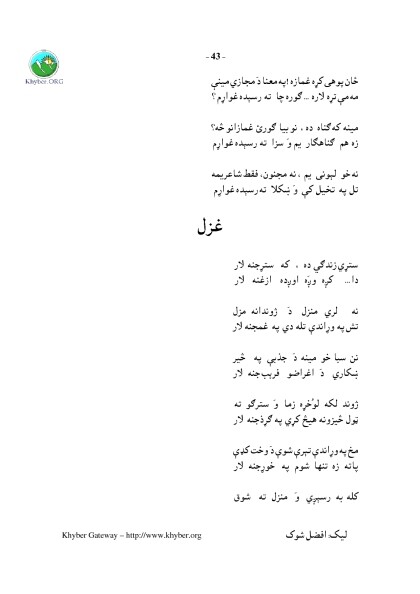 - 43 -
Khyber.ORG
ځان پوهی کړه غمازه ! په معنا دَ مجازي مینې
مه مې تړه لاره ... ګوره چا ته رسېده غواړم ؟
مینه که ګناه ده ، نو بیا ګورئ غمازانو څه؟
زه هم ګناهګار یم وَ سزا ته رسېده غواړم
نه خو لېونی یم ، نه مجنون، فقط شاعر یمه
تل په تخیل کې وَ ښکلا ته رسېده غواړم
غزل
ستړې زندګي ده ، که ستړجنه لار
دا... کږه وږه اوږده ازغنه لار
نه لري منزل دَ ژوندانه مزل
تش په وړاندې تله دي په غمجنه لار
نن سبا خو مینه دَ جذبې په څیر
ښکاري دَ اغراضو فریب جنه لار
ژوند لکه لوخړه زما وَ سترګو ته
ټول څیزونه هیڅ کړي په ګردجنه لار
مخ په وړاندې تېرې شوې دَ وخت کډې
پاته زه تنها شوم په خوږجنه لار
کله به رسېږي وَ منزل ته شوق
لیک: افضل شوک
Khyber Gateway – http://www.khyber.org